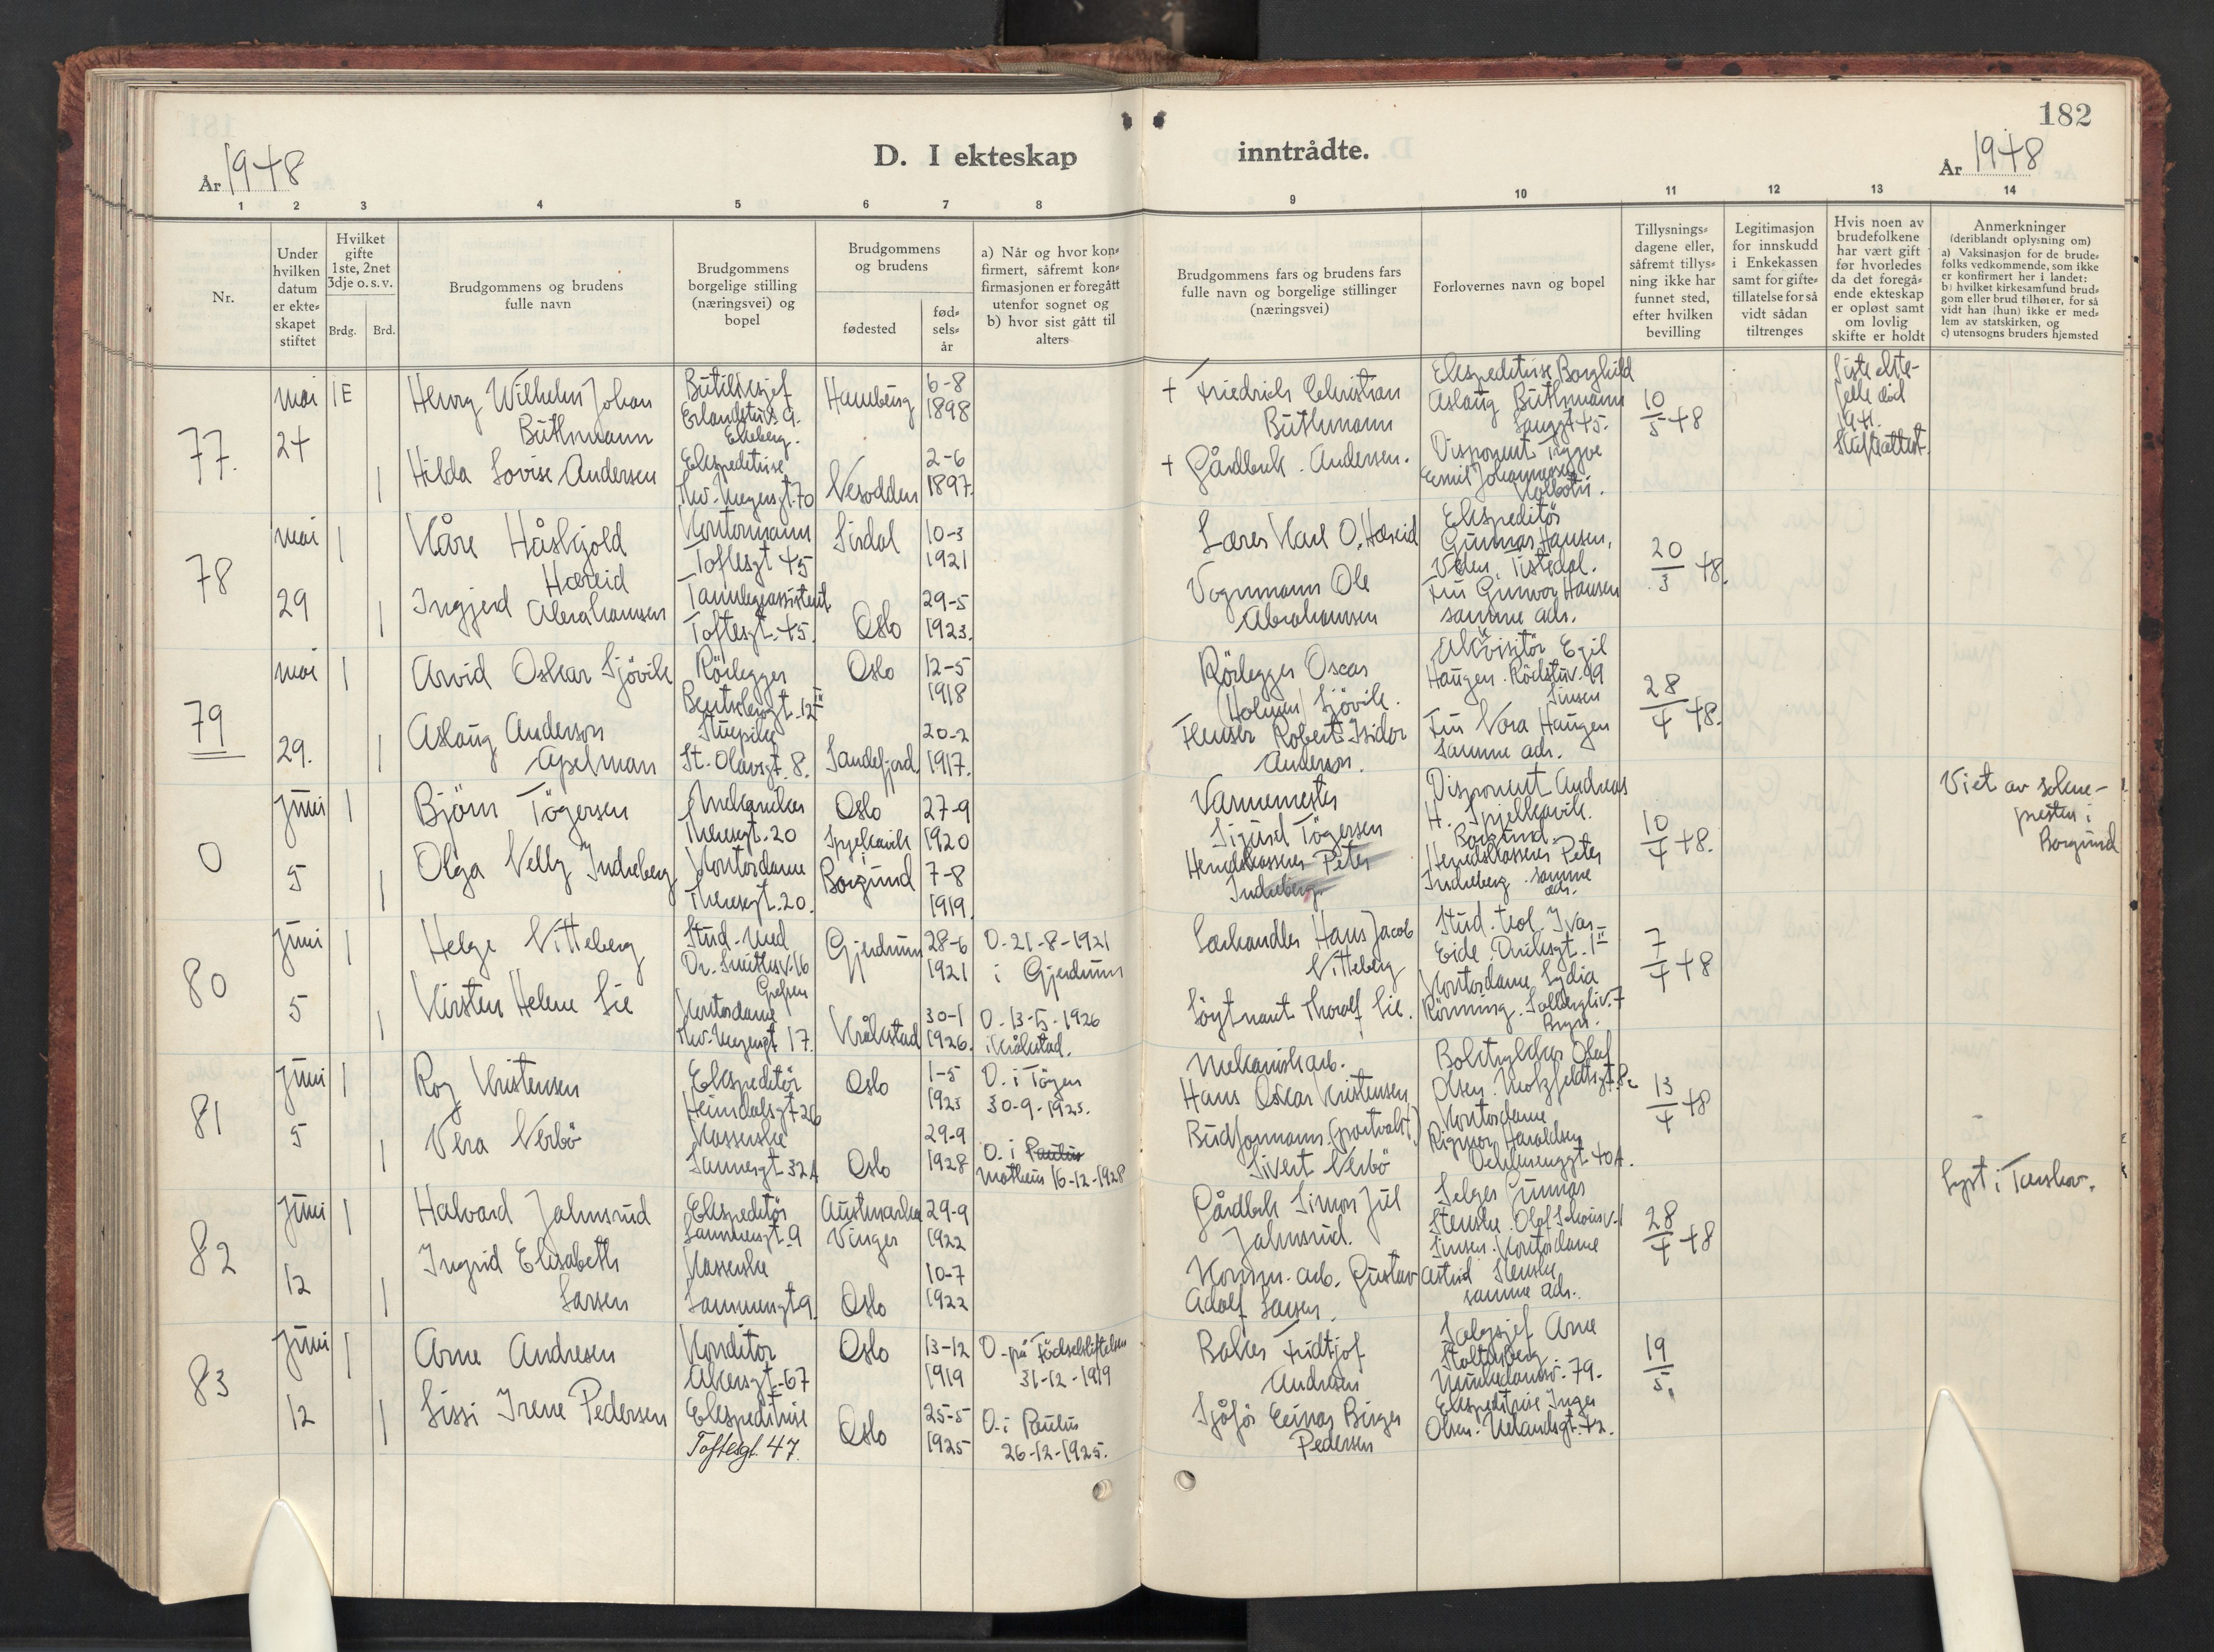 182
D. I ekteskap inntrådte.
År 1948
År 1948
1 2 3 4 5 6 7 8 9 10 11 12 13 14
Nr.
Under
hvilken
datum
er ekte-
skapet
stiftet
Hvilket
gifte
1ste, 2net
3dje o. s. v.
Brdg. Brd.
Brudgommens og brudens
fulle navn
Brudgommens
borgelige stilling
(næringsvei) og
bopel
Brudgommens
og brudens
fødested
fød-
sels-
år
a) Når og hvor kon-
firmert, såfremt kon-
firmasjonen er foregått
utenfor sognet og
b) hvor sist gått til
alters
Brudgommens fars og brudens fars
fulle navn og borgelige stillinger
(næringsvei)
Forlovernes navn og bopel
Tillysnings-
dagene eller,
såfremt tillys-
ning ikke har
funnet sted,
efter hvilken
bevilling
Legitimasjon
for innskudd
i Enkekassen
samt for gifte-
tillatelse for så
vidt sådan
tiltrenges
Hvis noen av
brudefolkene
har vært gift
før hvorledes
da det foregå-
ende ekteskap
er opløst samt
om lovlig
skifte er holdt
Anmerkninger
(deriblandt oplysning om)
a) Vaksinasjon for de brude-
folks vedkommende, som ikke
er konfirmert her i landet:
b) hvilket kirkesamfund brud-
gom eller brud tilhører, for så
vidt han (hun) ikke er med-
lem av statskirken, og
c) utensogns bruders hjemsted
77.
mai
24
E
Wilhelm Johan
Büthmann
Butikksjef
Ekeberg.
Hamburg
6-8
1898
+ Friedrich Christian
Büthmann
Ekspeditrise Borghild
Aslaug Büthmann
10/5 48
Siste ekte-
felle død
1941.
Skifteattest.
1
Hilda Lovise Andersen
Ekspeditrise
Nesodden
2-6
1897.
+ Gårdbruk. Andersen.
Disponent Trygve
Emil Johannesen
Kolbotn.
78
mai
29
1
Kåre Håskjold
Hæreid
Kontormann
Toftesgt 45
Sirdal
10-3
1921
Lærer Karl O. Hæreid
Ekspeditør
Gunnar Hansen,
Veden, Tistedal.
20/3 48.
1
Ingjerd Abrahamsen
Tannlegeassistent
Toftesgt. 45.
Oslo
29-5
1923.
Vognmann Ole
Abrahamsen
Fru Gunvor Hansen
samme adr.
79
mai
29.
1
Arvid Oskar Sjövik
Rörlegger
Bentsebrgt. 12 II
Oslo
12-5
1918
Rörlegger Oscar
(Holmen) Sjövik.
Akkvisitör Egil
Haugen. Rödtuv. 99
Sinsen
28/4 48.
1
Aslaug Anderson
Apelman
Stuepike
St. Olavsgt. 8.
Sandefjord.
20-2
1917.
Robert Isidor
Anderson.
Fru Nora Haugen
samme adr.
0
juni
5
1
Björn Tögersen
Mekaniker
Theresgt. 20
Oslo
27-9
1920
Varmemester
Sigurd Tögersen
Disponent Andreas
H. Spjelkavik.
Borgund.
10/4 48.
Viet av sokne-
presten i
Borgund
1
Olga Nelly Indreberg
Kontordame
Theresgt. 20.
Spjelkavik
i
Borgund
7-8
1919.
Herredskasserer Peter
Indreberg
Herredskasserer Peter
Indreberg. samme
adr.
80
juni
5
1
Helge Vitteberg
Stud. Med
Dr. Smithsv. 16
Grefsen
Gjerdrum
28-6
1921
D. 21-8-1921
i Gjerdrum
Hans Jacob
Vitteberg
Stud. teol. Ivar
Eide
7/4 48
1
Kirsten Helene Lie
Kontordame
Kråkstad
30-1
1926.
D. 13-5-1926
i Kråkstad.
Löytnant Thoralf Lie.
Kontordame Lydia
Rönning. Solbergliv. 7
Bryn.
81
juni
5
1
Roy Kristensen
Ekspeditör
Heimdalsgt 26
Oslo
1-5
1923
D. i Töyen
30-9-1923.
Mekanisk arb.
Hans Oskar Kristensen
Olaf
Olsen. Motzfeldtsgt.
13/4 48
1
Vera Nerbö
Kasserske
Sannergt. 32A
Oslo
29-9
1928
D. i Paulus
Mattheus 16-12-1928
Budformann (postvakt.)
Sivert Nerbö
Kontordame
Rigmor Haraldsen
Dehlenenggt 40A.
82
juni
12
1
Halvard Jahnsrud
Ekspeditör
Sannergt. 9
Austmarka
Vinger
29-9
1922
Gårdbruk Simon Juel
Jahnsrud.
Selger Gunnar
Stenske. Olaf Schousv. 1
Sinsen.
28/4 48
1
Ingrid Elisabeth
Larsen
Kasserske
Sannergt 9.
Oslo
10-7
1922
Komm. arb. Gustav
Adolf Larsen.
Kontordame
Astrid Stenske
samme adr.
83
juni
12
1
Arne Andresen
Konditor
Akersgt. 67
Oslo
13-12
1919
D. på Födselsstiftelsen
31-12-1919
Baker Fridtjof
Andresen
Salgssjef Arne
Stoltenberg.
19/5.
1
Sissi Irene Pedersen
Ekspeditrise
Toftesgt. 47.
Oslo
25-5
1925
D. i Paulus
26-12-1925.
Sjåför Einar Birger
Pedersen
Ekspeditrise Inger
Olsen. Uelandsgt. 72.